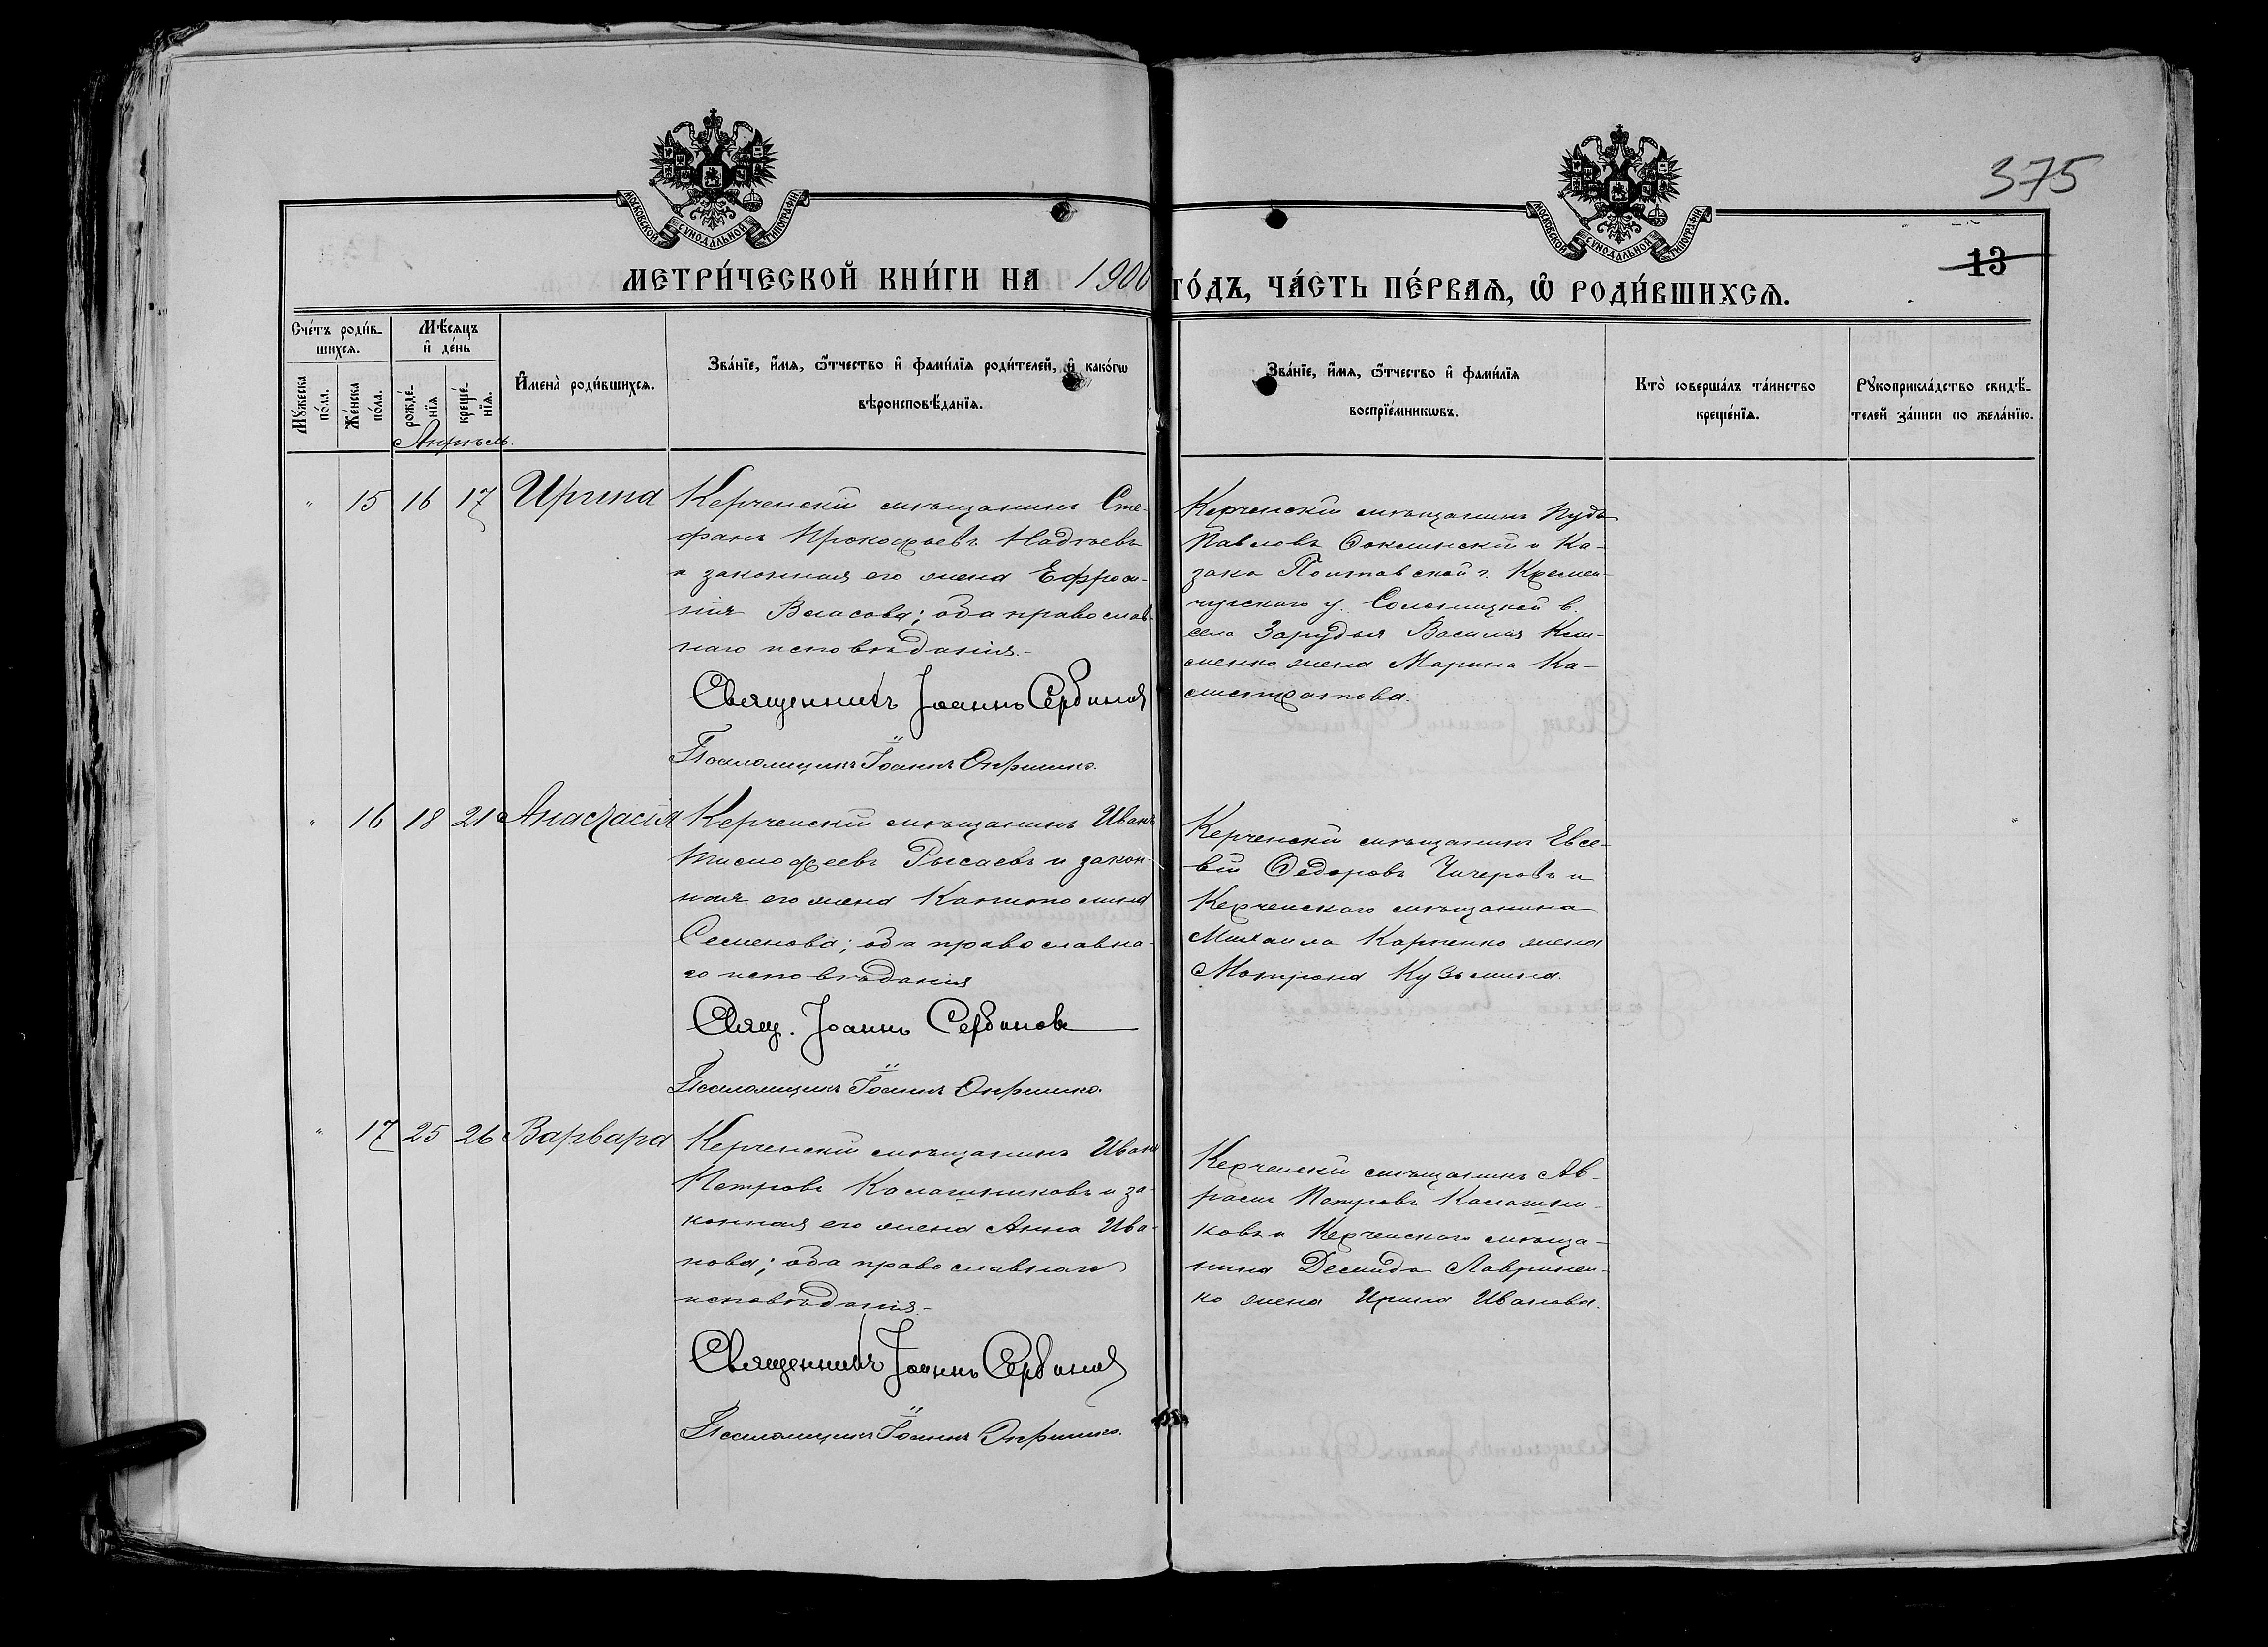 375
13
МОСКОВСКОЙ СѴНОДАЛЬНОЙ ТИПОГРАФІИ
МОСКОВСКОЙ СѴНОДАЛЬНОЙ ТИПОГРАФІИ
МЕТРИ́ЧЕСКОЙ КНИ́ГИ НА 1900 ГО́ДЪ, ЧА́СТЬ ПЕ́РВАѦ, Ѽ РОДИ́ВШИХСѦ.
Сче́тъ роди́в-
шихсѧ.
Мѣ́сѧцъ
и҆ де́нь
Мꙋ́жеска
по́ла.
Же́нска
по́ла.
рожде́-
нїѧ
креще́-
нїѧ.
И҆мена̀ роди́вшихсѧ.
Зва́нїе, и҆́мѧ, ѻ҆́тчество и҆ фами́лїѧ роди́телей, и҆ како́гѡ
вѣроисповѣ́данїѧ.
Зва́нїе, и҆́мѧ, ѻ҆́тчество и҆ фами́лїѧ
воспрїе́мникѡвъ.
Кто̀ соверша́лъ та́инство
креще́нїѧ.
Рꙋкоприкла́дство свидѣ́-
телей за́писи по жела́нїю.
Апрѣль.
" 15 16 17 Ирина
Керченскій мѣщанинъ Сте-
фанъ Прокофьевъ Надѣевъ
и законная его жена Ефроси-
нія Власова; оба православ-
наго исповѣданія.-
Священникъ Іоаннъ Сербиновъ
Псаломщикъ Іоаннъ Опришко.
Керченскій мѣщанинъ Пудъ
Павловъ и Ка-
зака Полтавской г. Кремен-
чугскаго у. в.
села Зарудья Василія
жена Марина Ка-
листратова.
" 16 18 21 Анастасія
Керченскій мѣщанинъ Иванъ
Тимофеевъ Рысаевъ и закон-
ная его жена Капитолина
Семенова; оба православна-
го исповѣданія
Свящ. Іоаннъ Сербиновъ
Псаломщикъ Іоаннъ Опришко.
Керченскій мѣщанинъ Евсе-
вій Ѳедоровъ Чичеровъ и
Керченскаго мѣщанина
Михаила Карпенко жена
Матрона Кузьмина.
" 17 25 26 Варвара
Керченскій мѣщанинъ Иванъ
Петровъ Калашниковъ и за-
конная его жена Анна Ива-
нова; оба православнаго
исповѣданія.-
Священникъ Іоаннъ Сербиновъ
Псаломщикъ Іоаннъ Опришко.
Керченскій мѣщанинъ Ав-
рамъ Петровъ Калашни-
ковъ и Керченскаго мѣща-
нина Демида Лавринен-
ко жена Ирина Иванова.